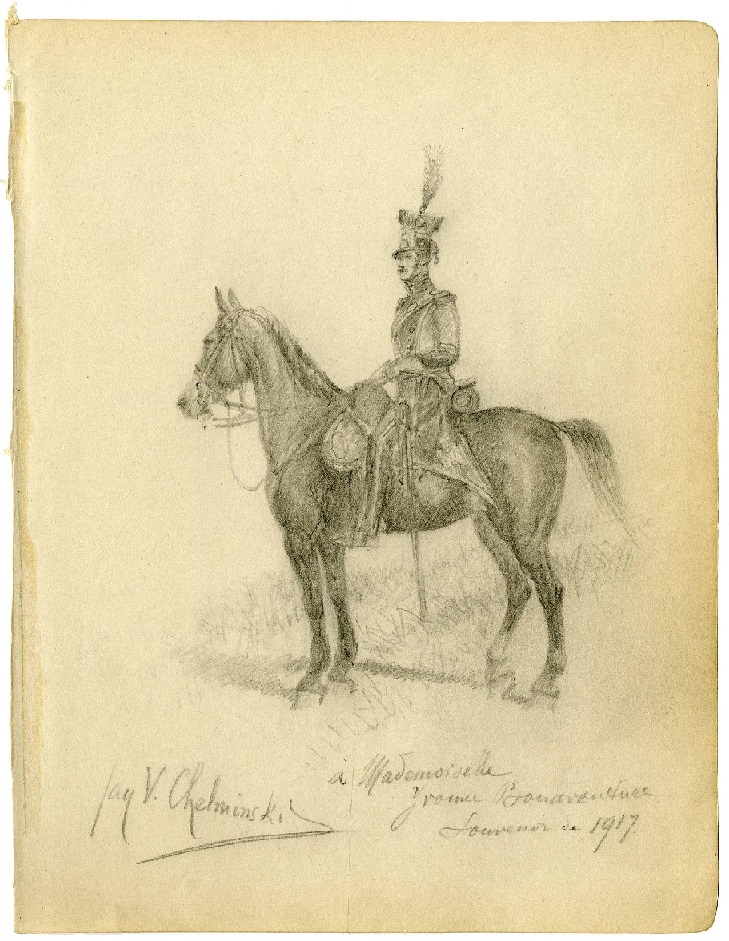 Jan V. Chelminski
à Mademoiselle
Yvonne Bonaventure
Souvenir de 1917